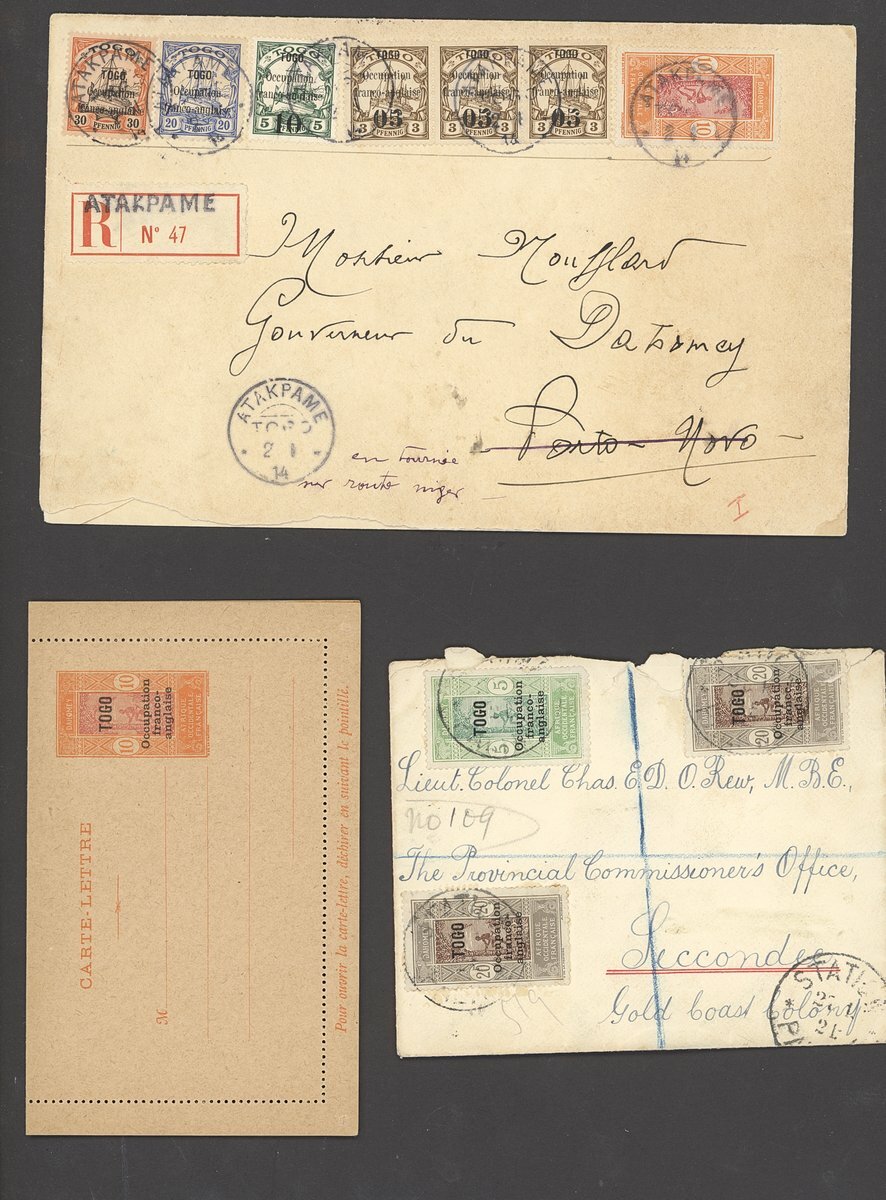 TOGO TOGO TOGO
TOGO TOGO TOGO TOGO TOGO TOGO
Occupation Occupation Occupation Occupation Occupation Occupation
franco-anglaise franco-anglaise franco-anglaise franco-anglaise franco-anglaise franco-anglaise
10 05 05 05
30 PFENNIG 30 20 PFENNIG 20 5 PFENNIG 5 3 PFENNIG 3 3 PFENNIG 3 3 PFENNIG 3 10
ATAKPAME
ATAKPAME
R Nº 47
Monsieur Noufflard
Gouverneur du Dahomey
Porto-Novo
ATAKPAME
TOGO
2 1
14
en tournée
sur route niger
I
10 10
TOGO
Occupation
franco-
anglaise
AFRIQUE
OCCIDENTALE
FRANÇAISE
CARTE-LETTRE
M
Pour ouvrir la carte-lettre, déchirer en suivant le pointillé.
5 5
TOGO
Occupation
franco-
anglaise
AFRIQUE
OCCIDENTALE
FRANÇAISE
20 20
TOGO
Occupation
franco-
anglaise
AFRIQUE
OCCIDENTALE
FRANÇAISE
Lieut. Colonel Chas. E. D. O. Rew, M.B.E.,
No 109
The Provincial Commissioner's Office,
20 20
TOGO
Occupation
franco-
anglaise
AFRIQUE
OCCIDENTALE
FRANÇAISE
Seccondee
Gold Coast Colony
519